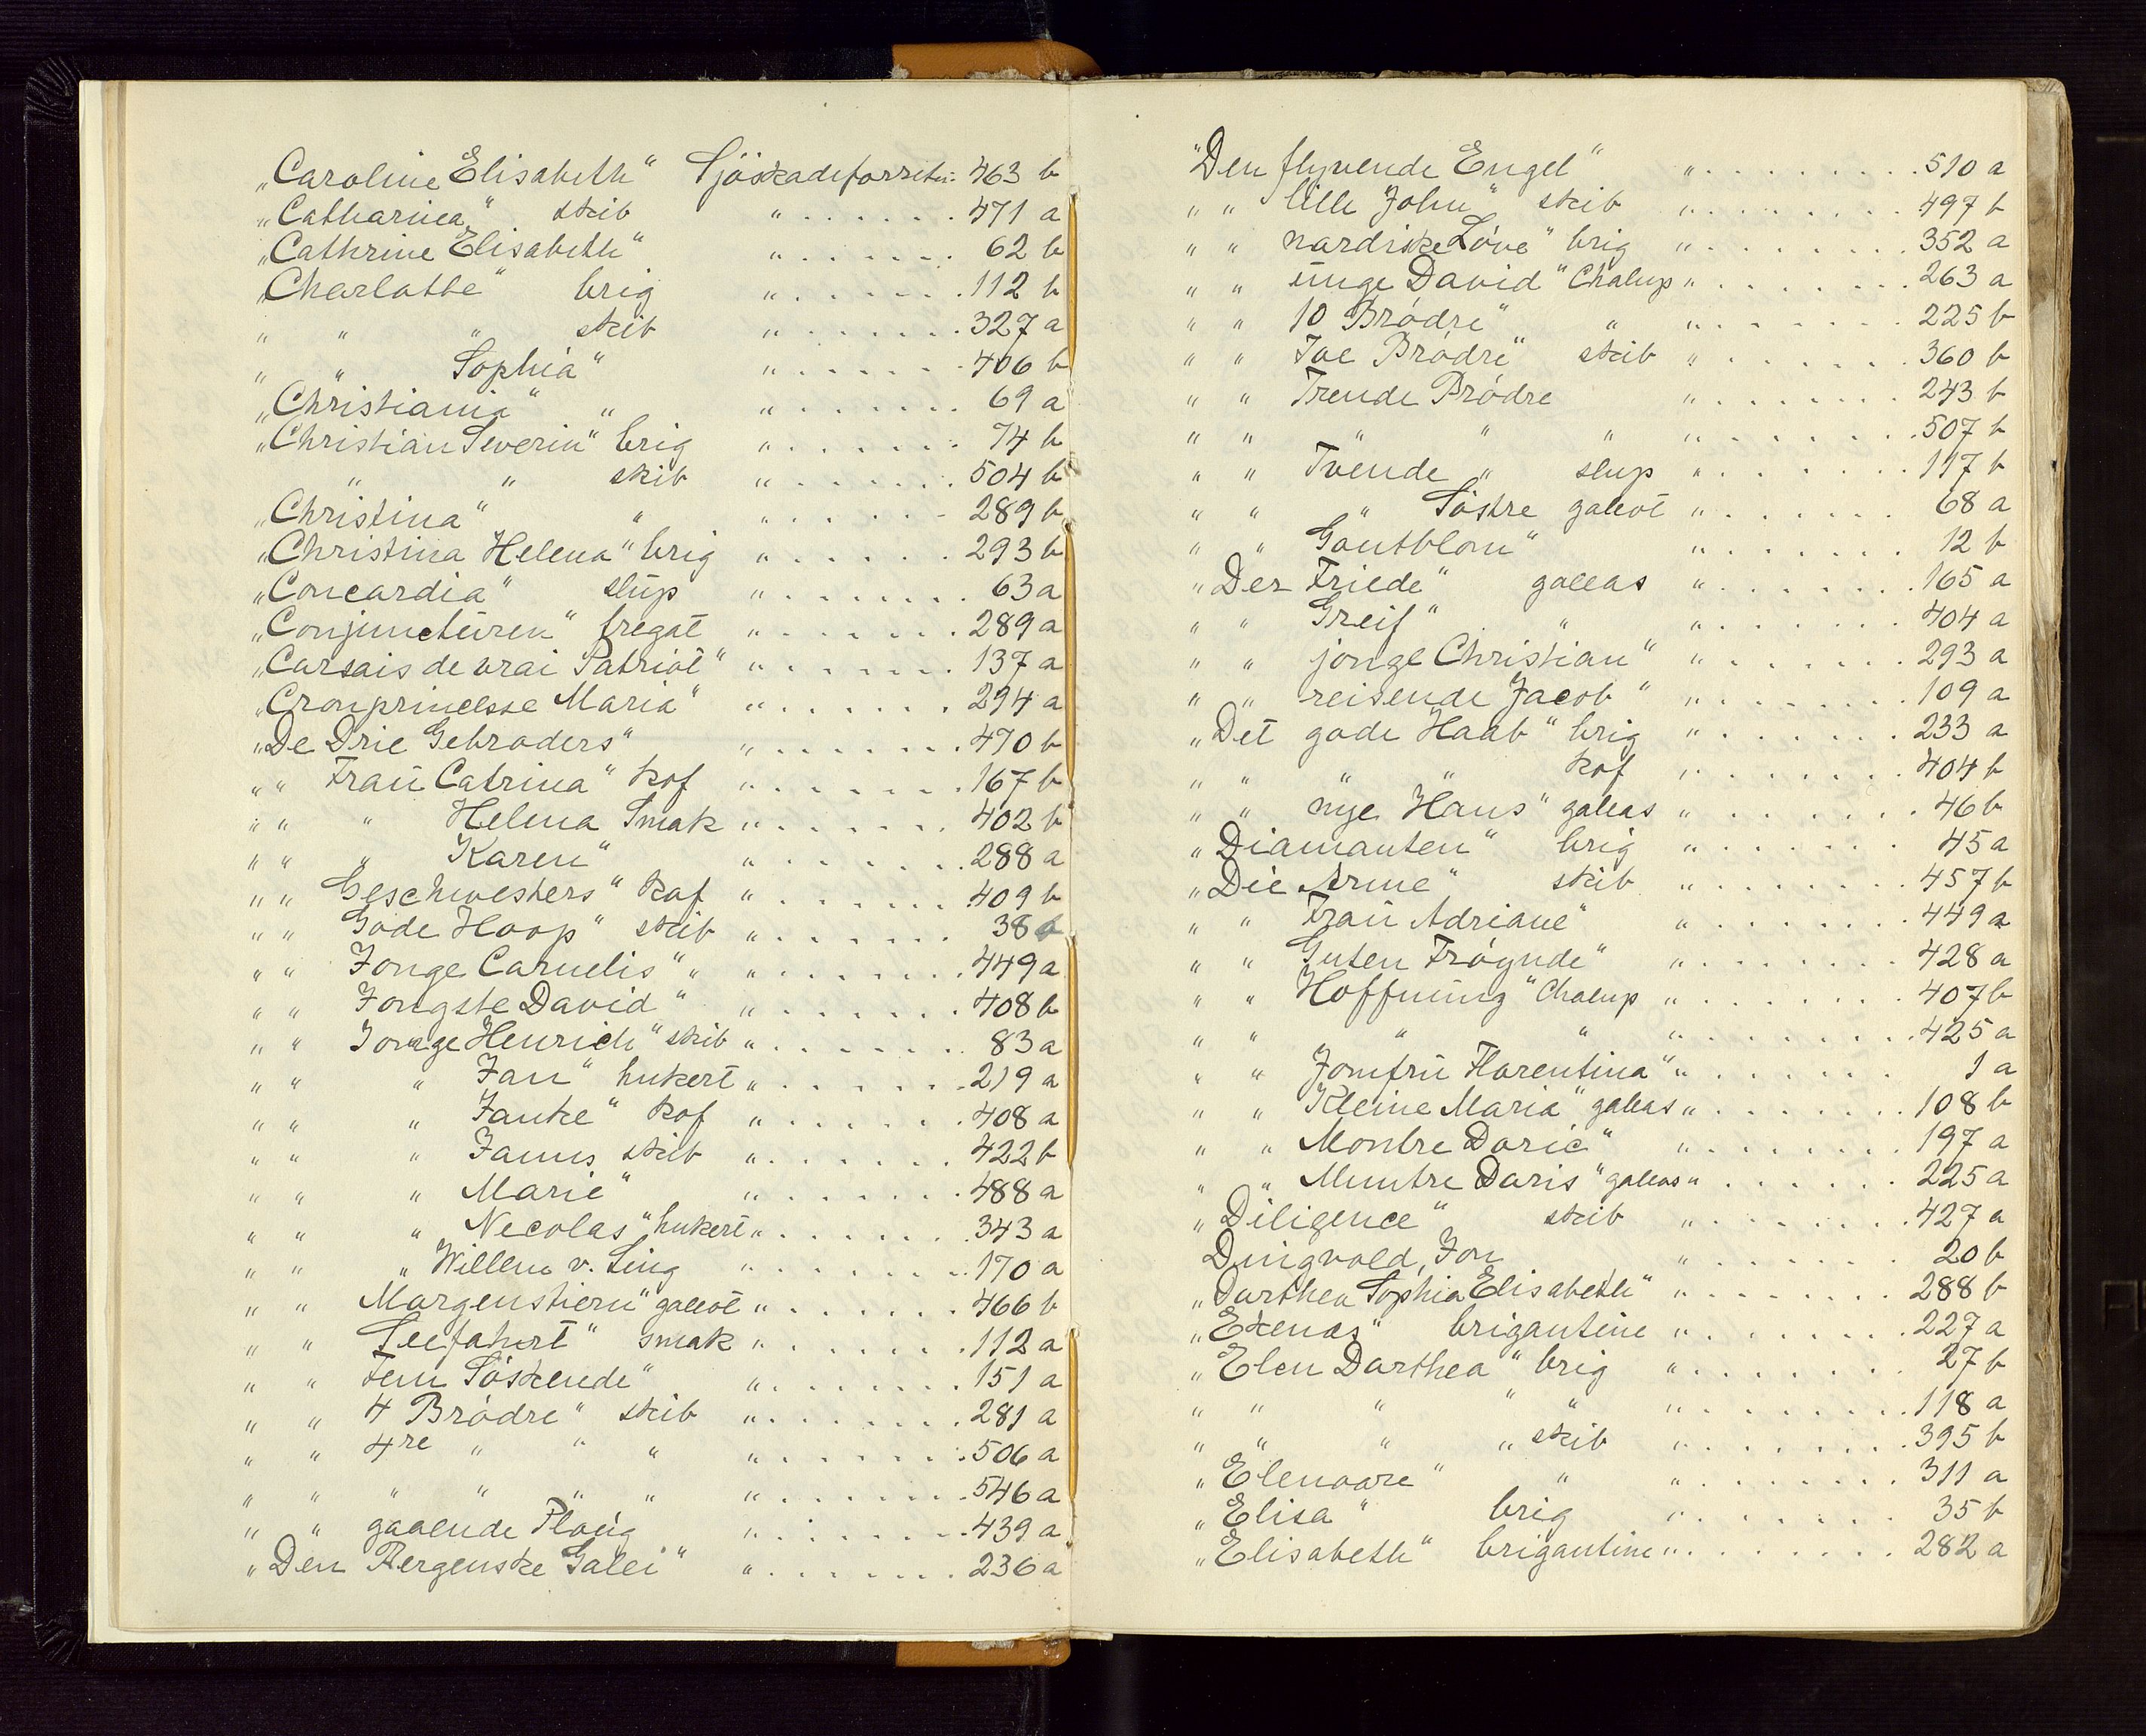 „Caroline Elisabeth" Sjöskadeforretn: 463 b
„Catharina" skib " . . . . . . . 471 a
„Cathrine Elisabeth" " . . . . . . . 62 b
„Charlotte" brig " . . . . . . . 112 b
" " " skib " . . . . . . . 327 a
" " Sophia" " . . . . . . . 406 b
„Christiania" " " . . . . . . . 69 a
„Christian Severin" brig " . . . . . . . 74 b
" " skib " . . . . . . . 504 b
„Christina" " " . . . . . . . 289 b
„Christina Helena" brig " . . . . . . . 293 b
„Concordia" slup " . . . . . . . 63 a
„Conjuncturen" fregat " . . . . . . . 289 a
„Corsais de vrai Patriot" " . . . . . . . 137 a
„Cronprincesse Maria" " . . . . . . . 294 a
„De Drie Gebroders" " . . . . . . . 470 b
" " Frau Catrina" kof " . . . . . . . 167 b
" " " Helena Smak " . . . . . . . 402 b
" " " Karen" " . . . . . . . 288 a
" " Geschwesters" kof " . . . . . . . 409 b
" " Gode Hoop" skib " . . . . . . . 38
" " Jonge Cornelis" " " . . . . . . . 449 a
" " Jongste David" " . . . . . . . 408 b
" " Jonge Henrich" skib " . . . . . . . 83 a
" " " Jan" hukert " . . . . . . . 219 a
" " " Janke" kof " . . . . . . . 408 a
" " " Janus skib " . . . . . . . 422 b
" " " Marie" " . . . . . . . 488 a
" " " Necolas" hukert " . . . . . . . 343 a
" " " Willem v. Ling " . . . . . . . 170 a
" " Morgenstiern" galeot " . . . . . . . 466 b
" " Seefahrt" smak " . . . . . . . 112 a
" " Fem Söskende" " . . . . . . . 151 a
" " 4 Brödre" skib " . . . . . . . 281 a
" " 4re " " " " . . . . . . . 506 a
" " " " " " " . . . . . . . 546 a
" " gaaende Ploug " . . . . . . . 439 a
„Den Bergenske Galei" " . . . . . . . 236 a
"Den flyvende Engel" " . . . . . . . 510 a
" " lille John" skib " . . . . . . . 497 b
" " nordiske Löve" brig " . . . . . . . 352 a
" " unge David" Chalup " . . . . . . . 263 a
" " 10 Brödre" " " . . . . . . . 225 b
" " Toe Brödre" skib " . . . . . . . 360 b
" " Trende Brödre " . . . . . . . 243 b
" " " " " " . . . . . . . 507 b
" " Tvende " slup " . . . . . . . 117 b
" " " Söstre galeot " . . . . . . . 68 a
" " Gontblom" " . . . . . . . 12 b
„Der Friede" galeas " . . . . . . . 165 a
" " Greif" " " . . . . . . . 404 a
" " jonge Christian" " . . . . . . . 293 a
" " reisende Jacob" " . . . . . . . 109 a
„Det gode Haab" brig " . . . . . . . 233 a
" " " " kof " . . . . . . . 404 b
" " nye Haus" galeas " . . . . . . . 46 b
„Diamanten" brig " . . . . . . . 45 a
„Die Arme" skib " . . . . . . . 457 b
" " Frau Adriane" " . . . . . . . 449 a
" " Guten Fröynde" " . . . . . . . 428 a
" " Hoffnung" Chalup " . . . . . . . 407 b
" " " " " . . . . . . . 425 a
" " Jomfru Florentina" " . . . . . . . 1 a
" " Kleine Maria" galeas " . . . . . . . 108 b
" " Montre Doric" " . . . . . . . 197 a
" " Muntre Doris" galeas " . . . . . . . 225 a
„Diligence" skib " . . . . . . . 427 a
Dingvold, Jon " . . . . . . . 20 b
„Dorthea Sophia Elisabeth" " . . . . . . . 288 b
„Ekenæs" brigantine " . . . . . . . 227 a
„Elen Dorthea" brig " . . . . . . . 27 b
" " " " " " . . . . . . . 118 a
" " " " skib " . . . . . . . 395 b
„Elenoore" " " . . . . . . . 311 a
„Elisa" brig " . . . . . . . 35 b
„Elisabeth" brigantine " . . . . . . . 282 a